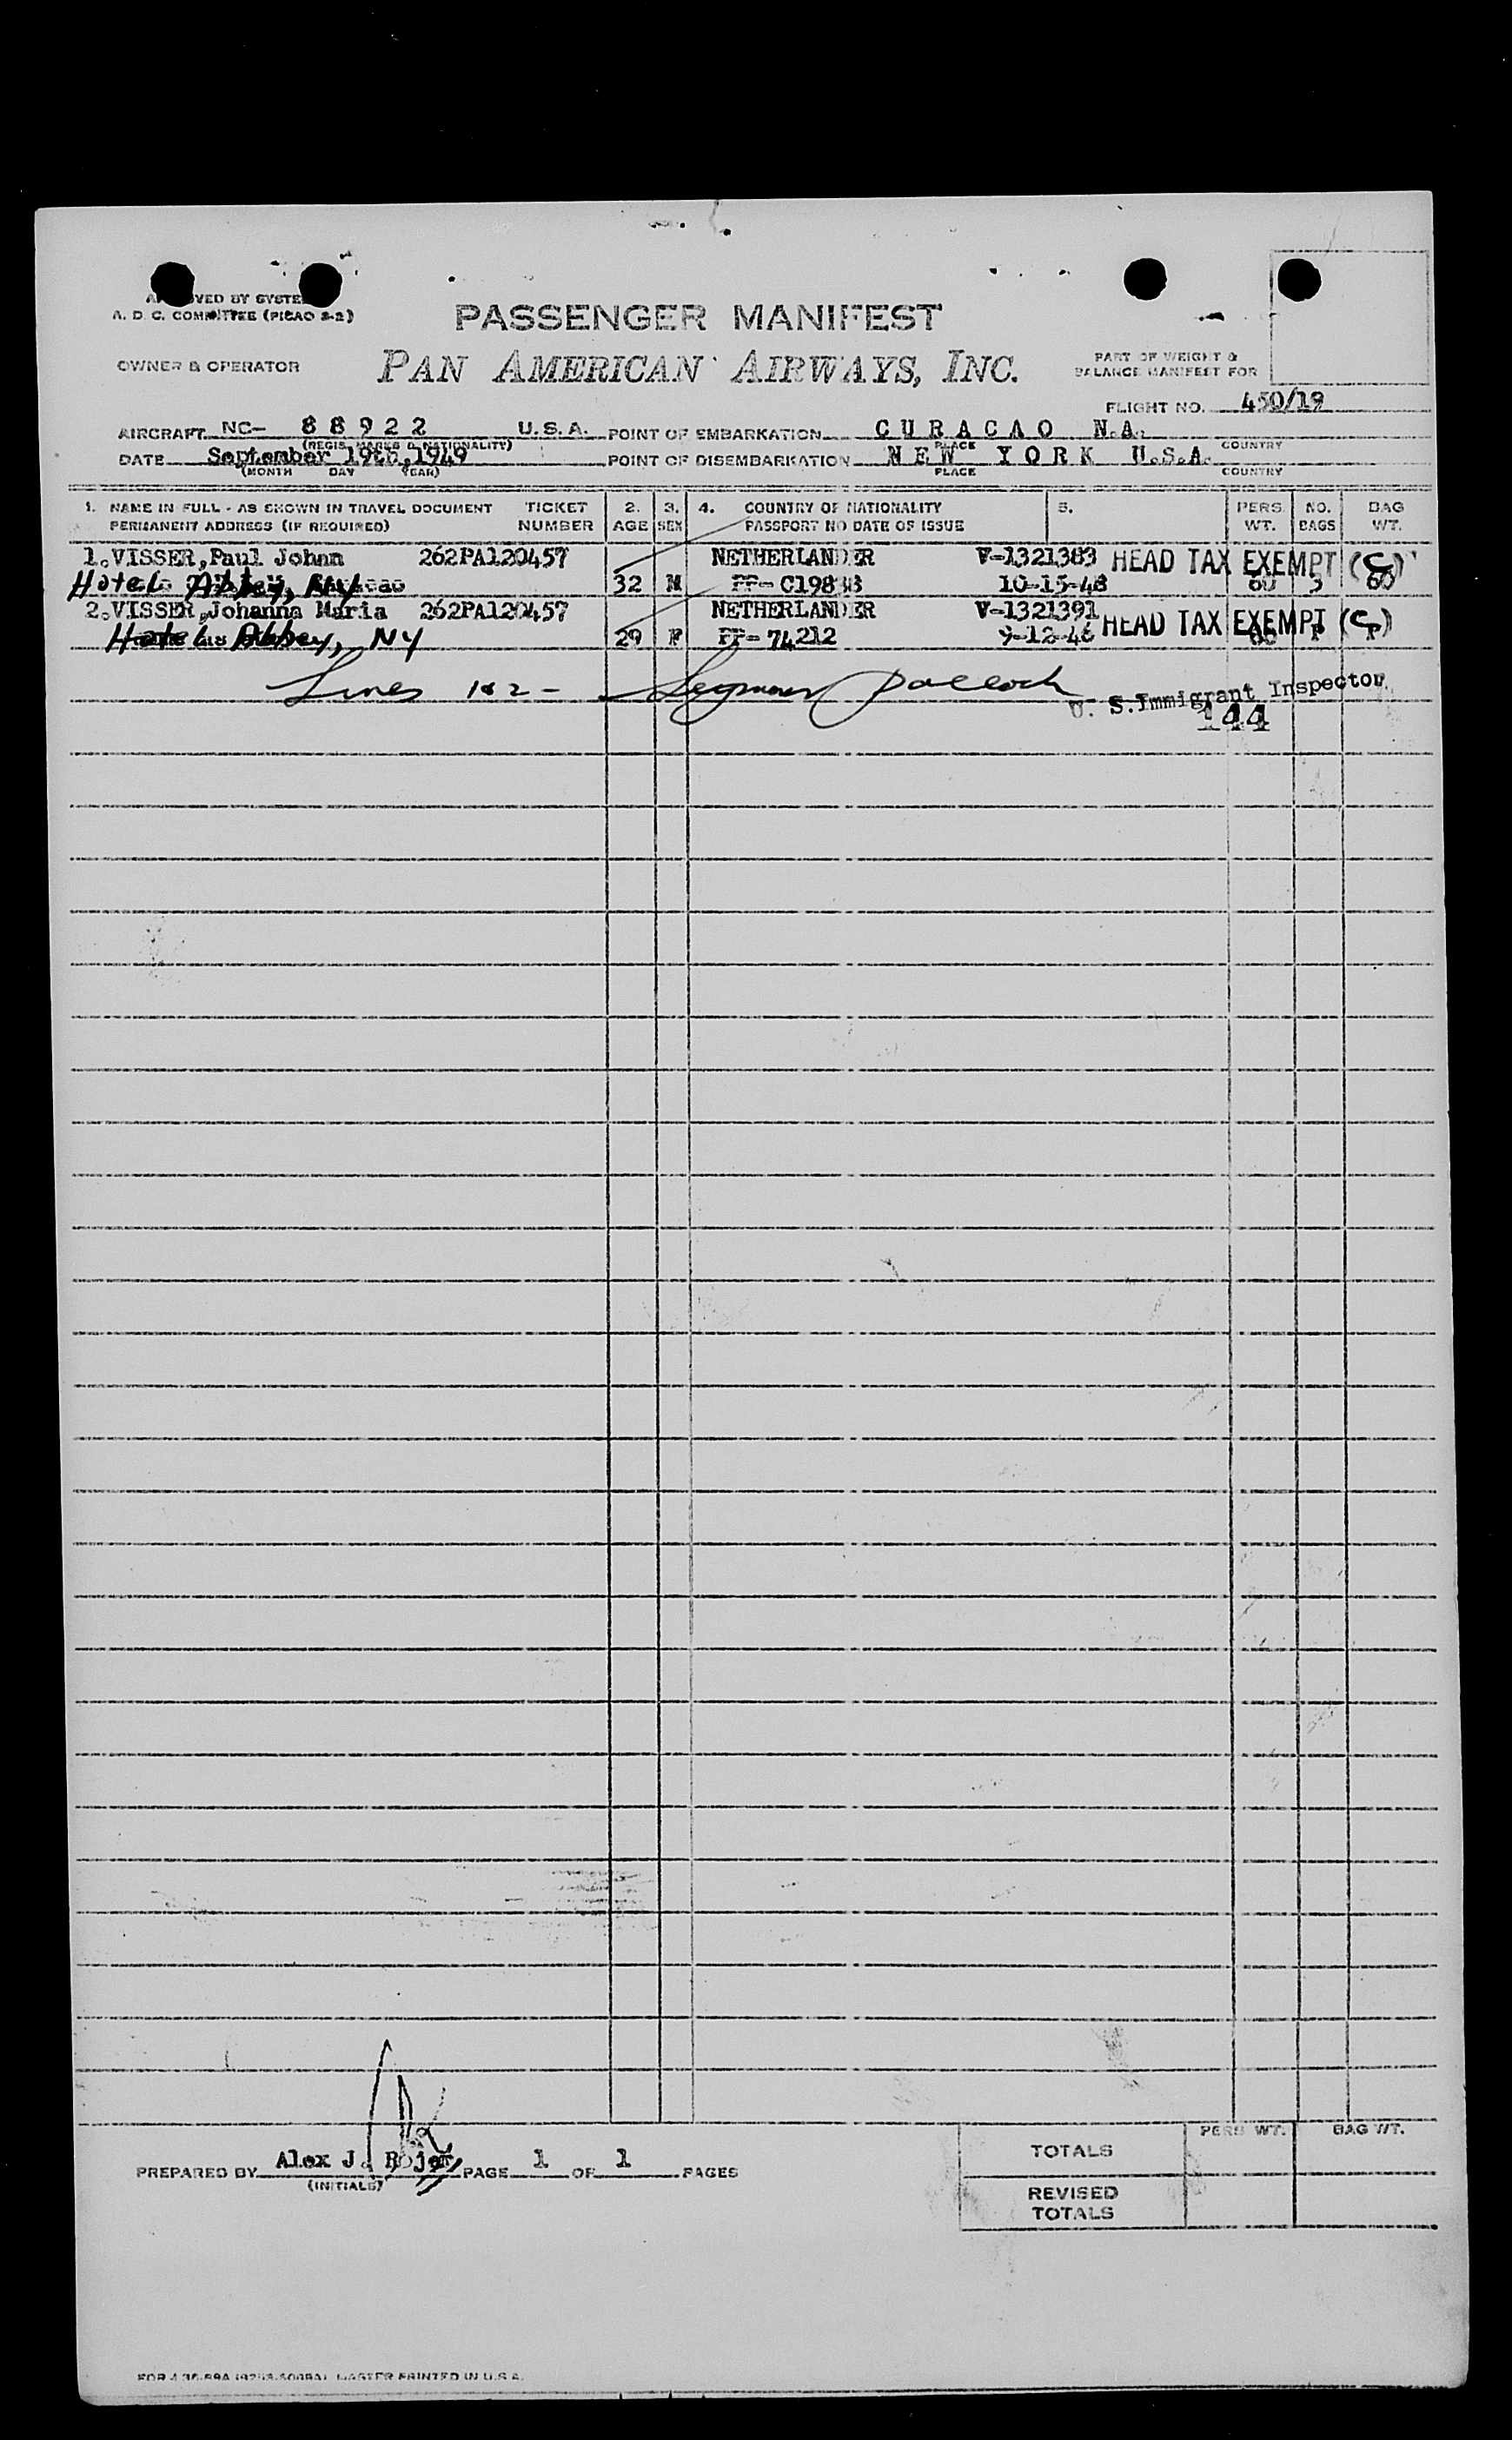 VED BY SYSTE
A. D. C. COMMITTEE (PICAO 2-2)
PASSENGER MANIFEST
OWNER & OPERATOR
PAN AMERICAN AIRWAYS, INC.
PART OF WEIGHT &
BALANCE MANIFEST FOR
FLIGHT NO. 450/19
AIRCRAFT NC- 88922 U.S.A. POINT OF EMBARKATION CURACAO N.A.
(REGIS. MARKS & NATIONALITY) PLACE COUNTRY
DATE September 19th, 1949 POINT OF DISEMBARKATION NEW YORK U.S.A.
(MONTH DAY YEAR) PLACE COUNTRY
1. NAME IN FULL - AS SHOWN IN TRAVEL DOCUMENT TICKET 2. 3. 4. COUNTRY OF NATIONALITY 5. PERS. NO. BAG
PERMANENT ADDRESS (IF REQUIRED) NUMBER AGE SEX PASSPORT NO DATE OF ISSUE WT. BAGS WT.
1.VISSER,Paul Johan 262PA120457 NETHERLANDER V-1321383 HEAD TAX EXEMPT (C)
Hotel Abbey, NY 32 M PP- C198 10-15-48
2.VISSER,Johanna Maria 262PA120457 NETHERLANDER V-1321391 HEAD TAX EXEMPT (C)
Hotel Abbey, NY 29 F PP- 74212 9-12-46
Lines 1 & 2 - Seymour Pollock
U. S. Immigrant Inspector
144
PREPARED BY Alex J. Rojer PAGE 1 OF 1 PAGES
(INITIALS)
PERS WT. BAG WT.
TOTALS
REVISED
TOTALS
PRINTED IN U.S.A.